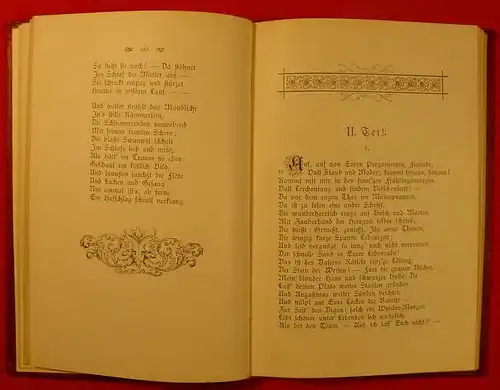 So steht sie noch! — Da stöhnet
Im Schlaf die Mutter auf —
Sie schreckt empor und stürzet
Hinaus in wildem Lauf. — —
Und weiter strahlt das Mondlicht
In's stille Kämmerlein,
Die Schlummernden umwebend
Mit seinem Schein;
Die blasse lächelt
Im Schlafe lieb und mild,
Als hätt' im Traum sie eben
Geschaut ein köstlich Bild.
Und draußen jauchzt die Flöte
Und Lachen und Gesang
Nur einmal ist's, ob ferne
Ein Hufschlag schnell verklang.
II. Teil.
I.
Auf, auf von Euren Pergamenten, Freunde,
Voll Staub und Moder; kommt hinaus, hinaus!
Kommt mit mir in den Frühlingsmorgen
Voll Lerchensang und lindem Veilchenduft! —
Da vor dem engen Thor im Morgen
Da ist zu lesen eine andre Schrift,
Die wunderherrlich rings auf Busch und Matten
Mit Zauberhand der Herrgott selber schrieb,
Die heißt: Genießt, genießt, Ihr arme Thoren,
Die winzig kurze Spanne Lebenszeit;
Und seid vergnügt so lang' noch nicht verronnen
Der schnelle Sand in Eurer Lebensuhr!
Das ist des Daseins Rätsels einz'ge Lösung,
Der Stein der Weisen! — Fort die grauen Bücher,
Mein blonder Hans und schwarzer Hasso. Da
Laß' deinen Plato weiter Staaten gründen
Und Augustinus weiter Sünden beichten
Und stülpt auf Eure Locken die Barette —
Zur Seit' den Degen! solch ein Wunder-Morgen
Lebt schöner unter Lebenden sich wahrlich,
Als bei den Toten. — Auf, ich laß' Euch nicht! —